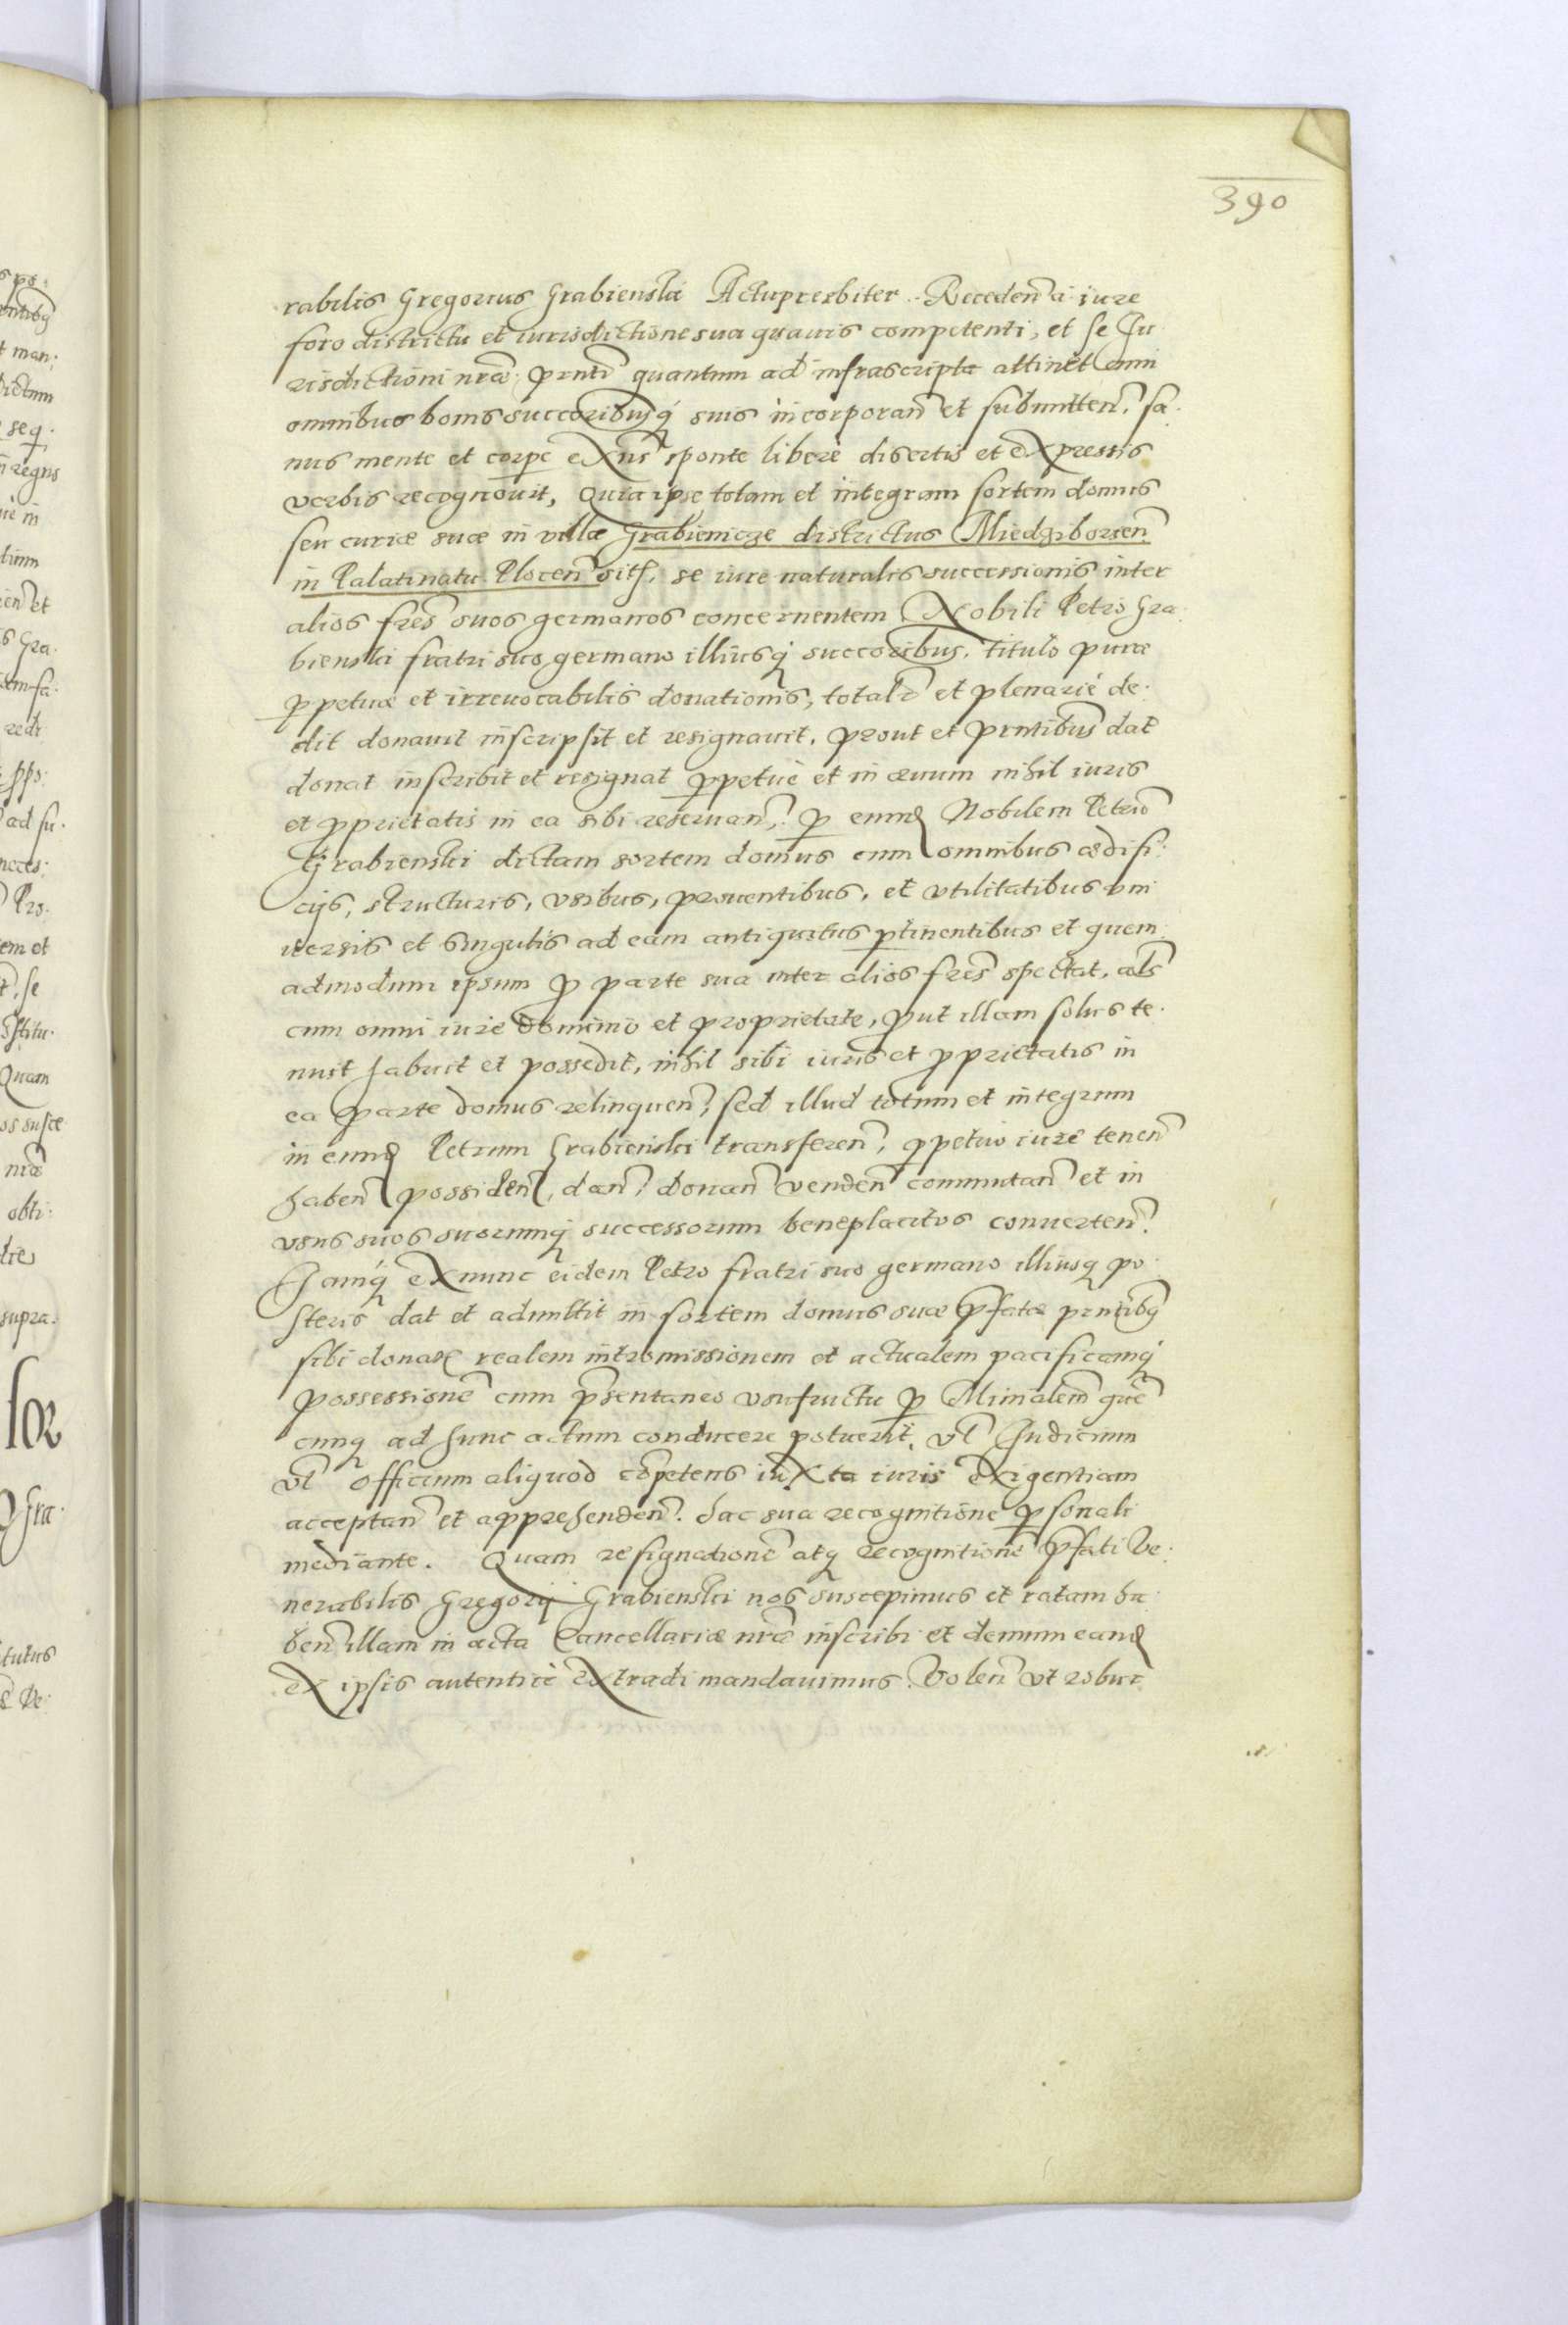 390
rabilis Gregorius Grabienski Actupresbiter. Receden̄ a iure
foro districtu et iurisdictione sua quauis competenti, et se Iu
risdictioni nrāe prnti quantum ad infrascripta attinet cum
omnibus bonis succoribusq suis incorporan̄ et submitten̄, sa
nus mente et corpe exn̄s sponte libere disertis et expressis
verbis recognouit, Quia ipse totam et integram sortem domus
seu curiæ suæ in villa Grabienicze districtus Miedziborien̄
in Palatinatu Plocen̄ sit, se iure naturalis successionis inter
alios fres̄ suos germanos concernentem Nobili Petro Gra
bienski fratri suo germano illiusq succoribus, titulo puræ
ꝑpetuæ et irreuocabilis donationis, totalr̄ et plenarie de
dit donauit inscripsit et resignauit, prout et prntibus dat
donat inscribit et resignat ꝑpetue et in æuum nihil iuris
et ꝓprietatis in ea sibi reseruan̄, ꝑ eund Nobilem Petrū
Grabienski dictam sortem domus cum omnibus ædifi
cijs, structuris, vsibus, prouentibus, et vtilitatibus vni
uersis et singulis ad eam antiquitus ꝑtinentibus et quem
admodum ipsum ꝓ parte sua inter alios fres̄ spectat, ac
cum omni iure dominio et proprietate, ꝓut illam solus te
nuit habuit et possedit, nihil sibi iuris et ꝓprietatis in
ea parte domus relinquen̄, sed illud totum et integrum
in eund Petrum Grabienski transferen̄, ꝑpetuo iure tenen̄
haben̄ possiden̄, dan̄ donan̄ venden̄ commutan̄ et in
vsus suos suorumq successorum beneplacitos conuerten̄.
Iamq ex nunc eidem Petro fratri suo germano illiusq po
steris dat et admittit in sortem domus suæ p̄fatæ prntibq
sibi donat realem intromissionem et actualem pacificamq
possessionē cum p̄sentaneo vsufructu ꝑ Mīnialem quē
cunq ad hunc actum conducere potuerit, vl̄ Iudicium
vl̄ officium aliquod cōpetens iuxta iuris exigentiam
acceptan̄ et apprehenden̄. hac sua recognitione ꝑsonali
mediante. Quam resignationē atq recognitionē p̄fati Ve
nerabilis Gregorij Grabienski nos suscepimus et ratam ha
ben̄ illam in acta Cancellariæ nrāe inscribi et demum eand
ex ipsis autentice extradi mandauimus. Volen̄ vt robur